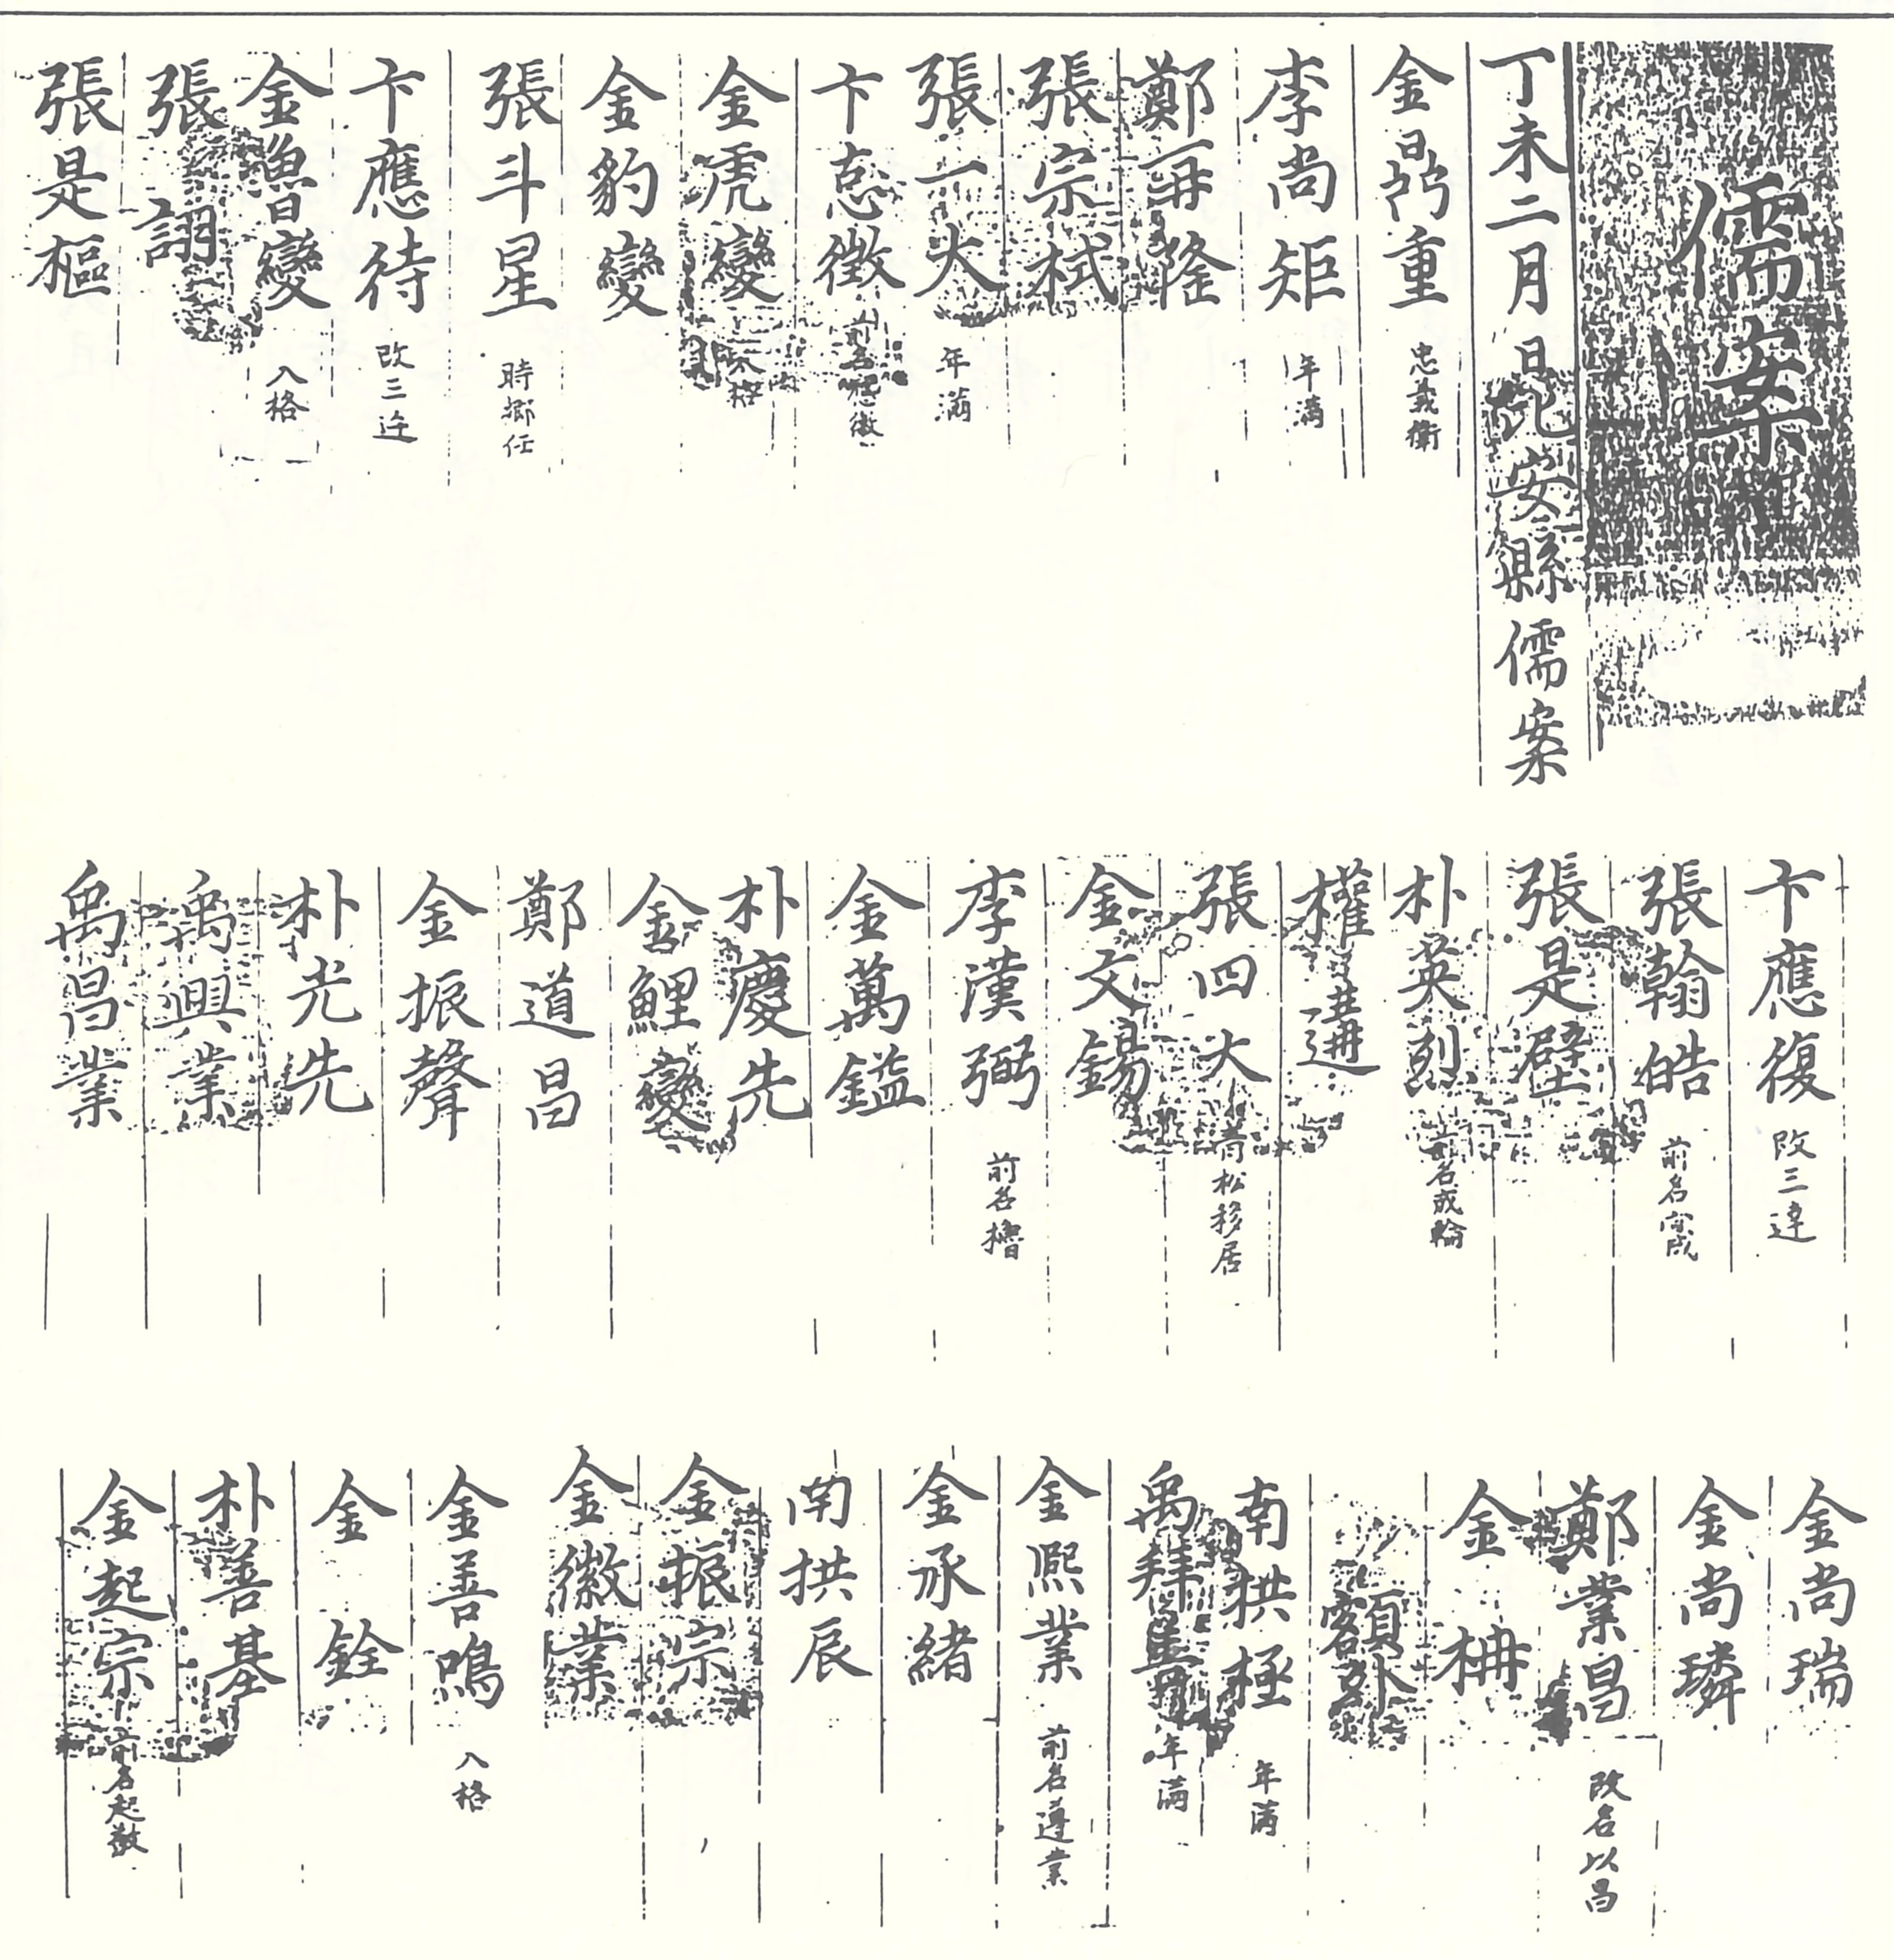 儒案
丁未二月日比安縣儒案
金鼎重 忠義衛
李尚矩 年滿
鄭再隆
張宗栻
張一大 年滿
卞慤徵 前名起徵
金虎變 入格
金豹變
張斗星 時鄉任
卞應待 改三迕
金魯變 入格
張詡
張是樞
卞應復 改三達
張翰皓 前名宬
張是壁
朴英烈 前名成輪
權遘
張四大 靑松移居
金文錫
李漢弼 前名櫓
金萬鎰
朴慶先
金鯉變
鄭道昌
金振聲
朴光先
禹興業
禹昌業
金尚瑞
金尚璘
鄭業昌 改名以昌
金柟
額外
南拱極 年滿
禹拜 年滿
金熙業 前名遵業
金承緒
南拱辰
金振宗
金徽業
金善鳴 入格
金銓
朴善基
金起宗 前名起敬